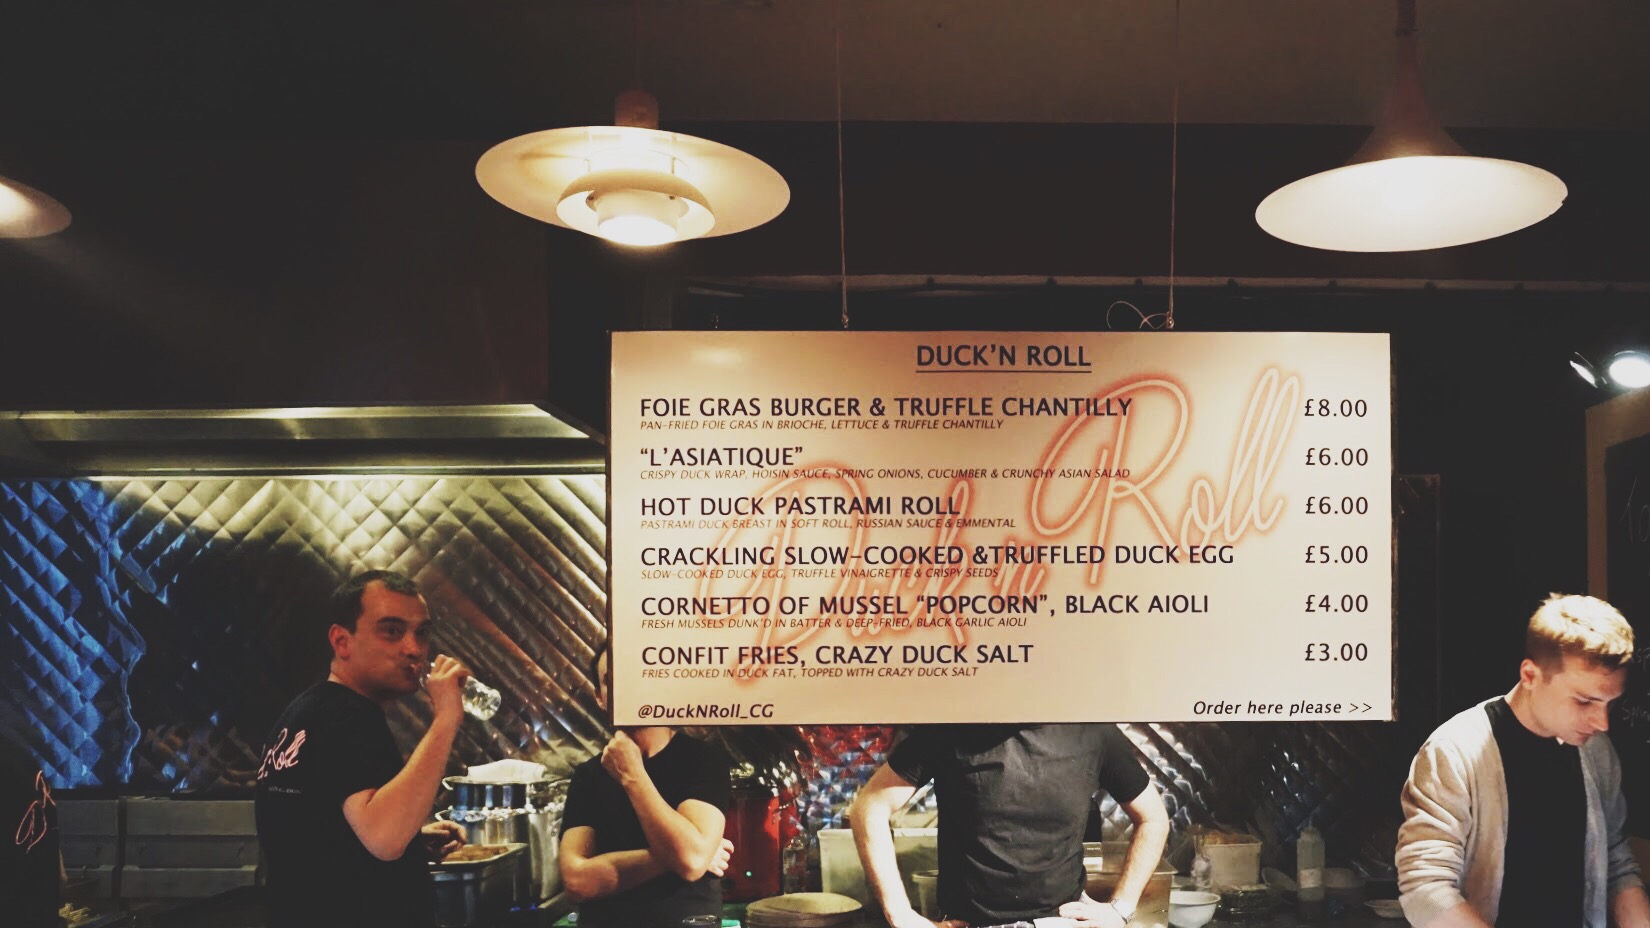 DUCK'N ROLL
FOIE GRAS BURGER & TRUFFLE CHANTILLY £8.00
PAN-FRIED FOIE GRAS IN BRIOCHE, LETTUCE & TRUFFLE CHANTILLY
"L'ASIATIQUE" £6.00
CRISPY DUCK WRAP, HOISIN SAUCE, SPRING ONIONS, CUCUMBER & CRUNCHY ASIAN SALAD
HOT DUCK PASTRAMI ROLL £6.00
PASTRAMI DUCK BREAST IN SOFT ROLL, RUSSIAN SAUCE & EMMENTAL
CRACKLING SLOW-COOKED &TRUFFLED DUCK EGG £5.00
SLOW-COOKED DUCK EGG, TRUFFLE VINAIGRETTE & CRISPY SEEDS
CORNETTO OF MUSSEL "POPCORN", BLACK AIOLI £4.00
FRESH MUSSELS DUNK'D IN BATTER & DEEP-FRIED, BLACK GARLIC AIOLI
CONFIT FRIES, CRAZY DUCK SALT £3.00
FRIES COOKED IN DUCK FAT, TOPPED WITH CRAZY DUCK SALT
@DuckNRoll_CG Order here please >>
Duck n Roll
Roll